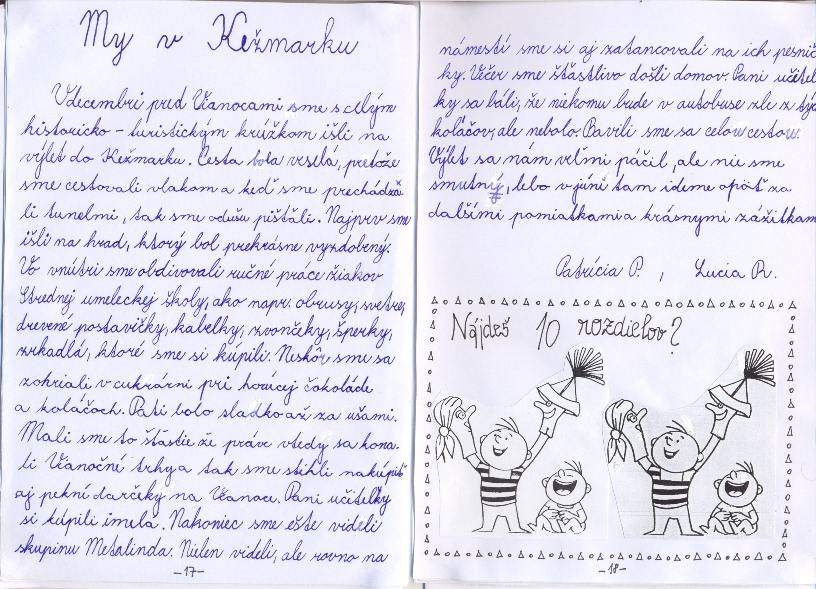 My v Kežmarku
V decembri pred Vianocami sme s celým
historicko - turistickým krúžkom išli na
výlet do Kežmarku. Cesta bola veselá, pretože
sme cestovali vlakom a keď sme prechádza
li tunelmi, tak sme odušu pišťali. Najprv sme
išli na hrad, ktorý bol prekrásne vyzdobený.
Vo vnútri sme obdivovali ručné práce žiakov
Strednej umeleckej školy, ako napr. obrusy, svetre,
drevené postavičky, kabelky, zvončeky, šperky,
zrkadlá, ktoré sme si kúpili. Neskôr sme sa
zohriali v cukrárni pri horúcej čokoláde
a koláčoch. Pati bolo sladko až za ušami.
Mali sme to šťastie že práve vtedy sa kona-
li Vianočné trhy a tak sme stihli nakúpiť
aj pekné darčeky na Vianoce. Pani učiteľky
si kúpili imelá. Nakoniec sme ešte videli
skupinu Metalinda. Nielen videli, ale rovno na
-17-
námestí sme si aj zatancovali na ich pesnič
ky. Večer sme šťastlivo došli domov. Pani učiteľ
ky sa báli, že niekomu bude v autobuse zle z tý
koláčov, ale nebolo. Bavili sme sa celou cestou.
Výlet sa nám veľmi páčil, ale nie sme
smutný, lebo v júni tam ideme opäť za
dalšími pamiatkami a krásnymi zážitkam
Patrícia P. , Lucia R.
Nájdeš 10 rozdielov?
-18-